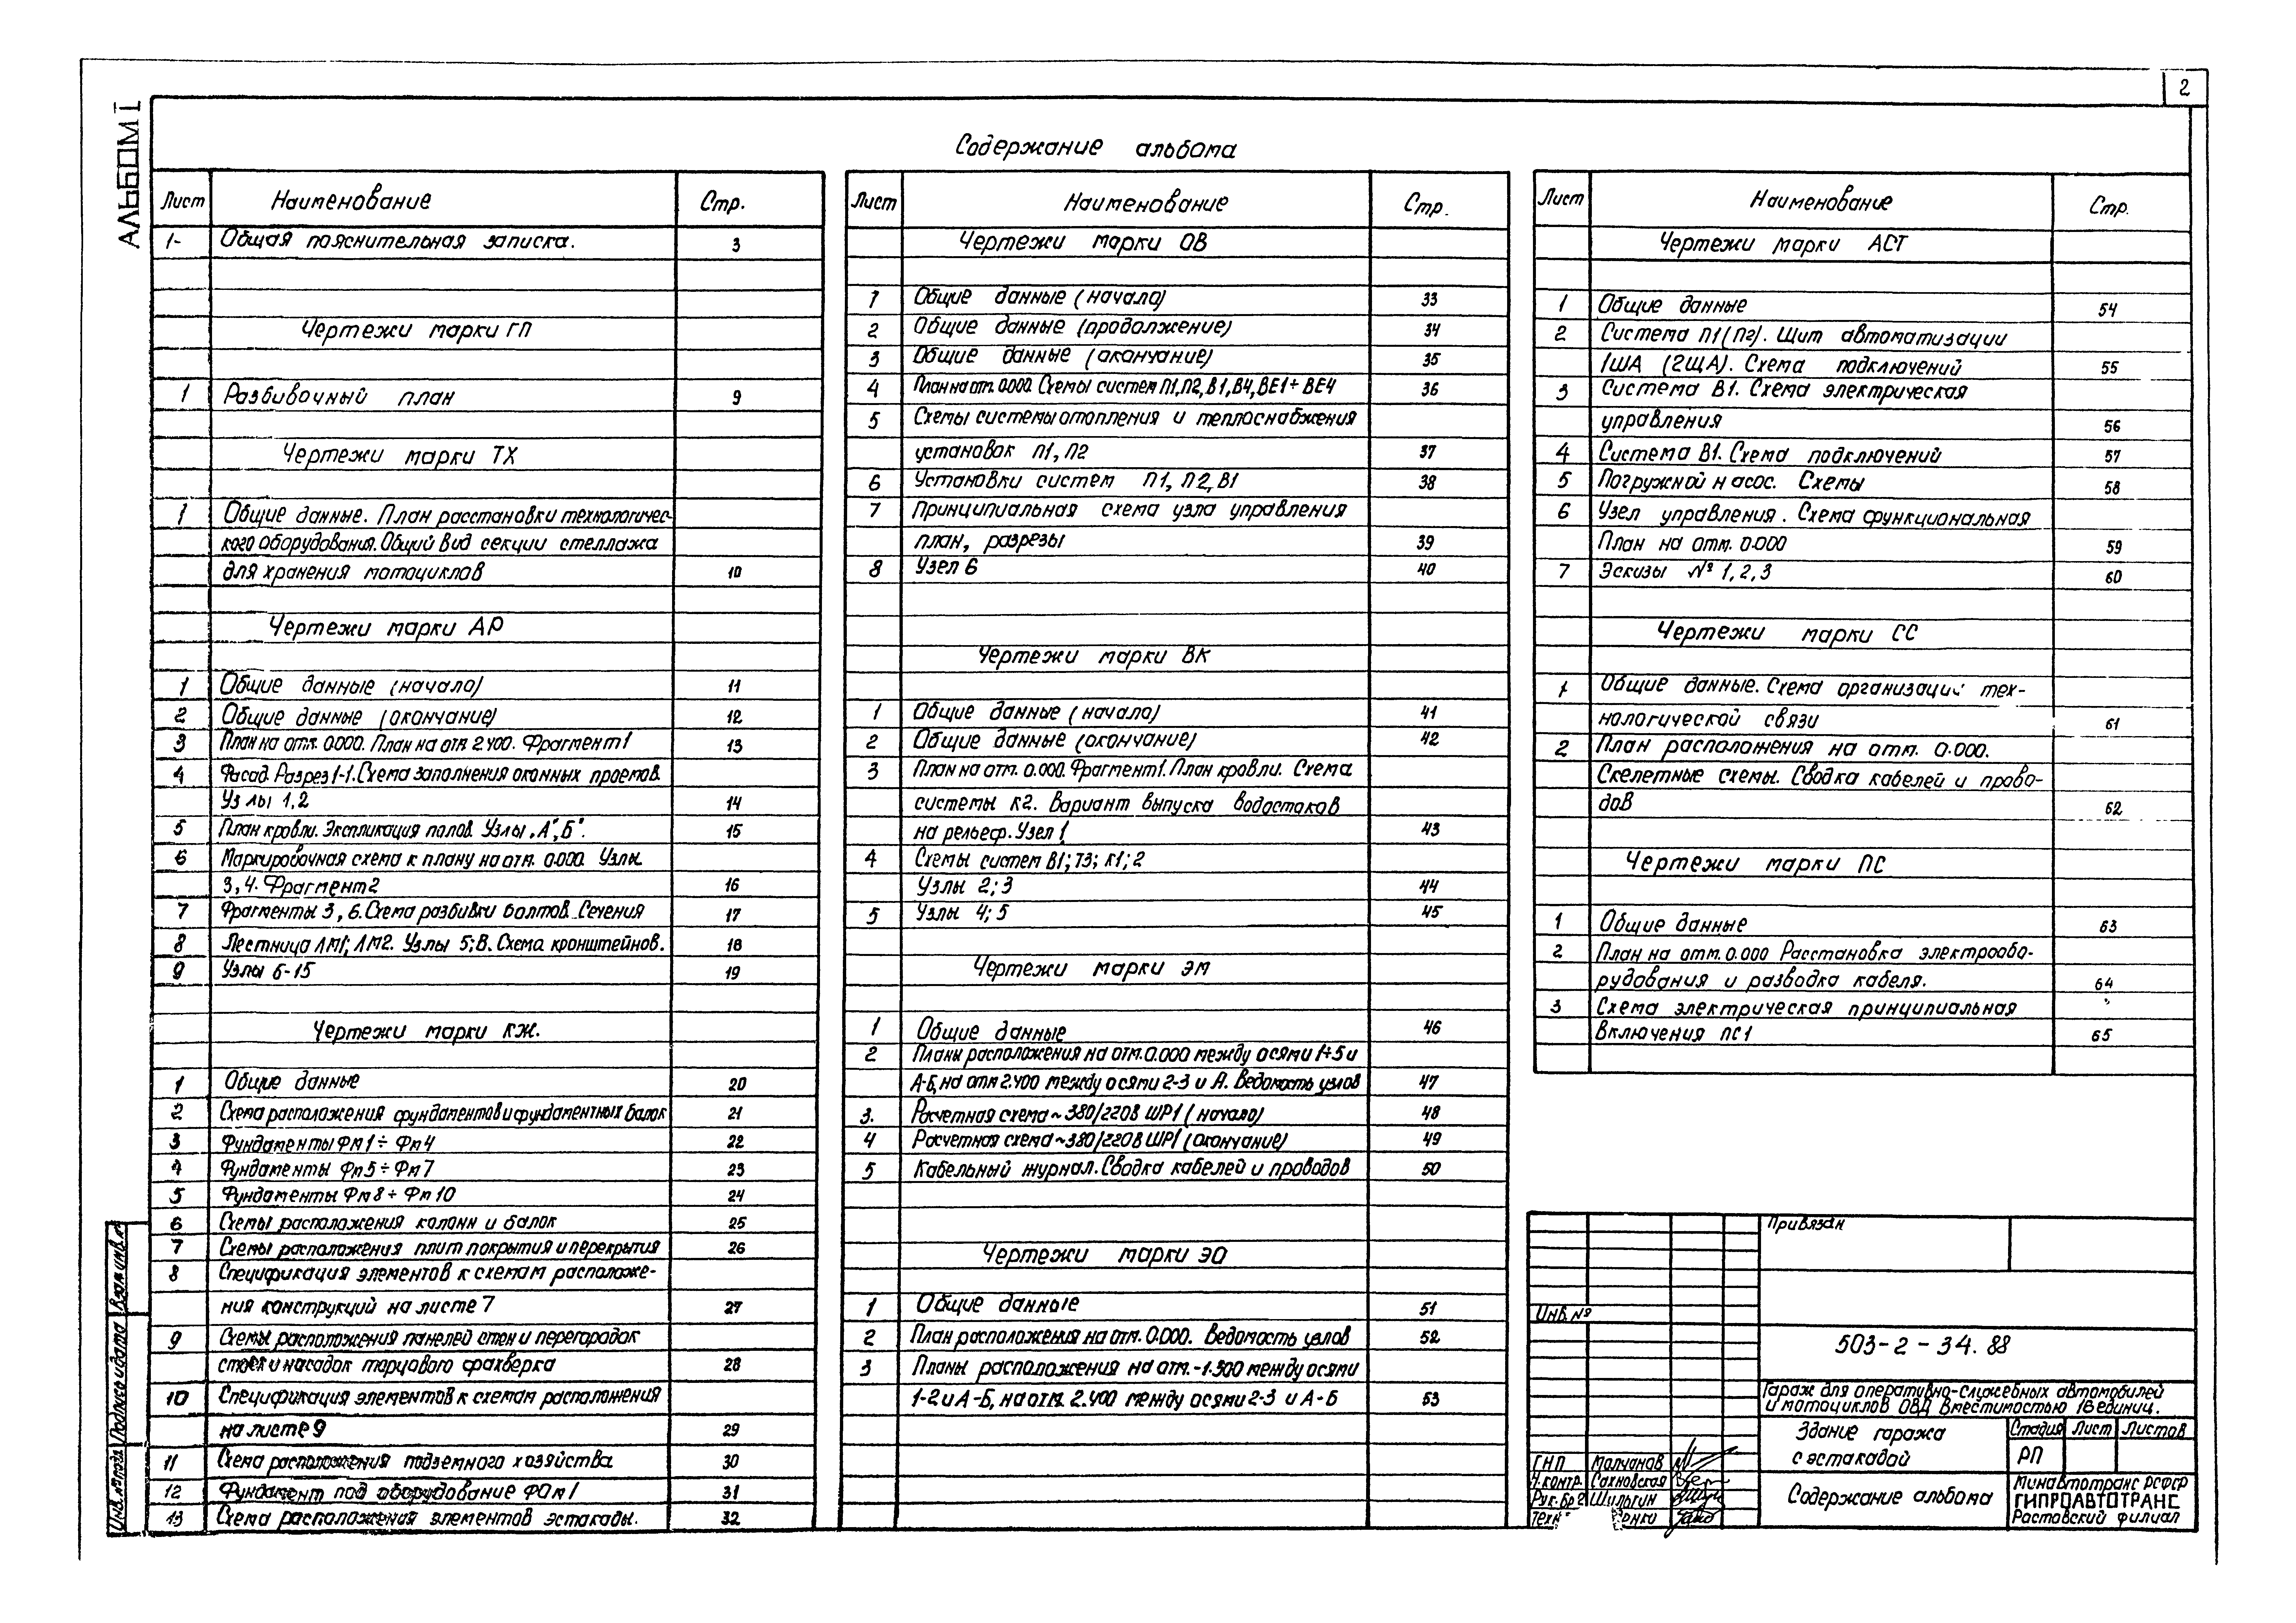 2
АЛЬБОМ I
Содержание альбома
Лист Наименование Стр.
1- Общая пояснительная записка. 3
Чертежи марки ГП
1 Разбивочный план 9
Чертежи марки ТХ
1 Общие данные. План расстановки технологичес-
кого оборудования. Общий вид секции стеллажа
для хранения мотоциклов 10
Чертежи марки АР
1 Общие данные (начало) 11
2 Общие данные (окончание) 12
3 План на отм. 0.000. План на отм 2.400. Фрагмент 1 13
4 Фасад. Разрез 1-1. Схема заполнения оконных проемов.
Узлы 1,2 14
5 План кровли. Экспликация полов. Узлы „А", Б". 15
6 Маркировочная схема к плану на отм. 0.000. Узлы
3, 4. Фрагмент 2 16
7 Фрагменты 3, 6. Схема разбивки болтов. Сечения 17
8 Лестница ЛМ1; ЛМ2. Узлы 5; В. Схема кронштейнов. 18
9 Узлы 6-15 19
Чертежи марки КЖ.
1 Общие данные 20
2 Схема расположения фундаментов и фундаментных балок 21
3 Фундаменты Фм 1 ÷ Фм 4 22
4 Фундаменты Фм 5 ÷ Фм 7 23
5 Фундаменты Фм 8 ÷ Фм 10 24
6 Схемы расположения колонн и балок 25
7 Схемы расположения плит покрытия и перекрытия 26
8 Спецификация элементов к схемам расположе-
ния конструкций на листе 7 27
9 Схемы расположения панелей стен и перегородок
стоек и насадок торцового фахверка 28
10 Спецификация элементов к схемам расположения
на листе 9 29
11 Схема расположения подземного хозяйства 30
12 Фундамент под оборудование ФОм 1 31
13 Схема расположения элементов эстакады. 32
Лист Наименование Стр.
Чертежи марки ОВ
1 Общие данные (начало) 33
2 Общие данные (продолжение) 34
3 Общие данные (окончание) 35
4 План на отм. 0.000. Схемы систем П1, П2, В1, В4, ВЕ1 ÷ ВЕ4 36
5 Схемы системы отопления и теплоснабжения
установок П1, П2 37
6 Установки систем П1, П2, В1 38
7 Принципиальная схема узла управления
план, разрезы 39
8 Узел 6 40
Чертежи марки ВК
1 Общие данные (начало) 41
2 Общие данные (окончание) 42
3 План на отм. 0.000. Фрагмент 1. План кровли. Схема
системы К2. Вариант выпуска водостоков
на рельеф. Узел 1 43
4 Схемы систем В1; Т3; К1; 2
Узлы 2; 3 44
5 Узлы 4; 5 45
Чертежи марки ЭМ
1 Общие данные 46
2 Планы расположения на отм. 0.000 между осями 1÷5 и
А-Б, на отм 2.400 между осями 2-3 и А. Ведомость узлов 47
3. Расчетная схема ~ 380/220В ШР1 (начало) 48
4 Расчетная схема ~380/220В ШР1 (окончание) 49
5 Кабельный журнал. Сводка кабелей и проводов 50
Чертежи марки ЭО
1 Общие данные 51
2 План расположения на отм. 0.000. Ведомость узлов 52
3 Планы расположения на отм. -1.300 между осями
1-2 и А-Б, на отм. 2.400 между осями 2-3 и А-Б 53
Лист Наименование Стр.
Чертежи марки АСТ
1 Общие данные 54
2 Система П1 (П2). Щит автоматизации
1ША (2ЩА). Схема подключений 55
3 Система В1. Схема электрическая
управления 56
4 Система В1. Схема подключений 57
5 Погружной насос. Схемы 58
6 Узел управления. Схема функциональная
План на отм. 0.000 59
7 Эскизы № 1, 2, 3 60
Чертежи марки СС
1 Общие данные. Схема организации тех-
нологической связи 61
2 План расположения на отм. 0.000.
Скелетные схемы. Сводка кабелей и прово-
дов 62
Чертежи марки ПС
1 Общие данные 63
2 План на отм. 0.000 Расстановка электрообо-
рудования и разводка кабеля. 64
3 Схема электрическая принципиальная
включения ПС1 65
Привязан
Инв. №
503-2-34.88
Гараж для оперативно-служебных автомобилей
и мотоциклов ОВД вместимостью 18 единиц.
Здание гаража
с эстакадой
Стадия Лист Листов
РП
ГНП Молчанов
Н.контр. Сахновская
Рук.бр Шильгин
Техн
Содержание альбома
Минавтотранс РСФСР
ГИПРОАВТОТРАНС
Ростовский филиал
Инв. № подл. Подпись и дата Взам. инв. №